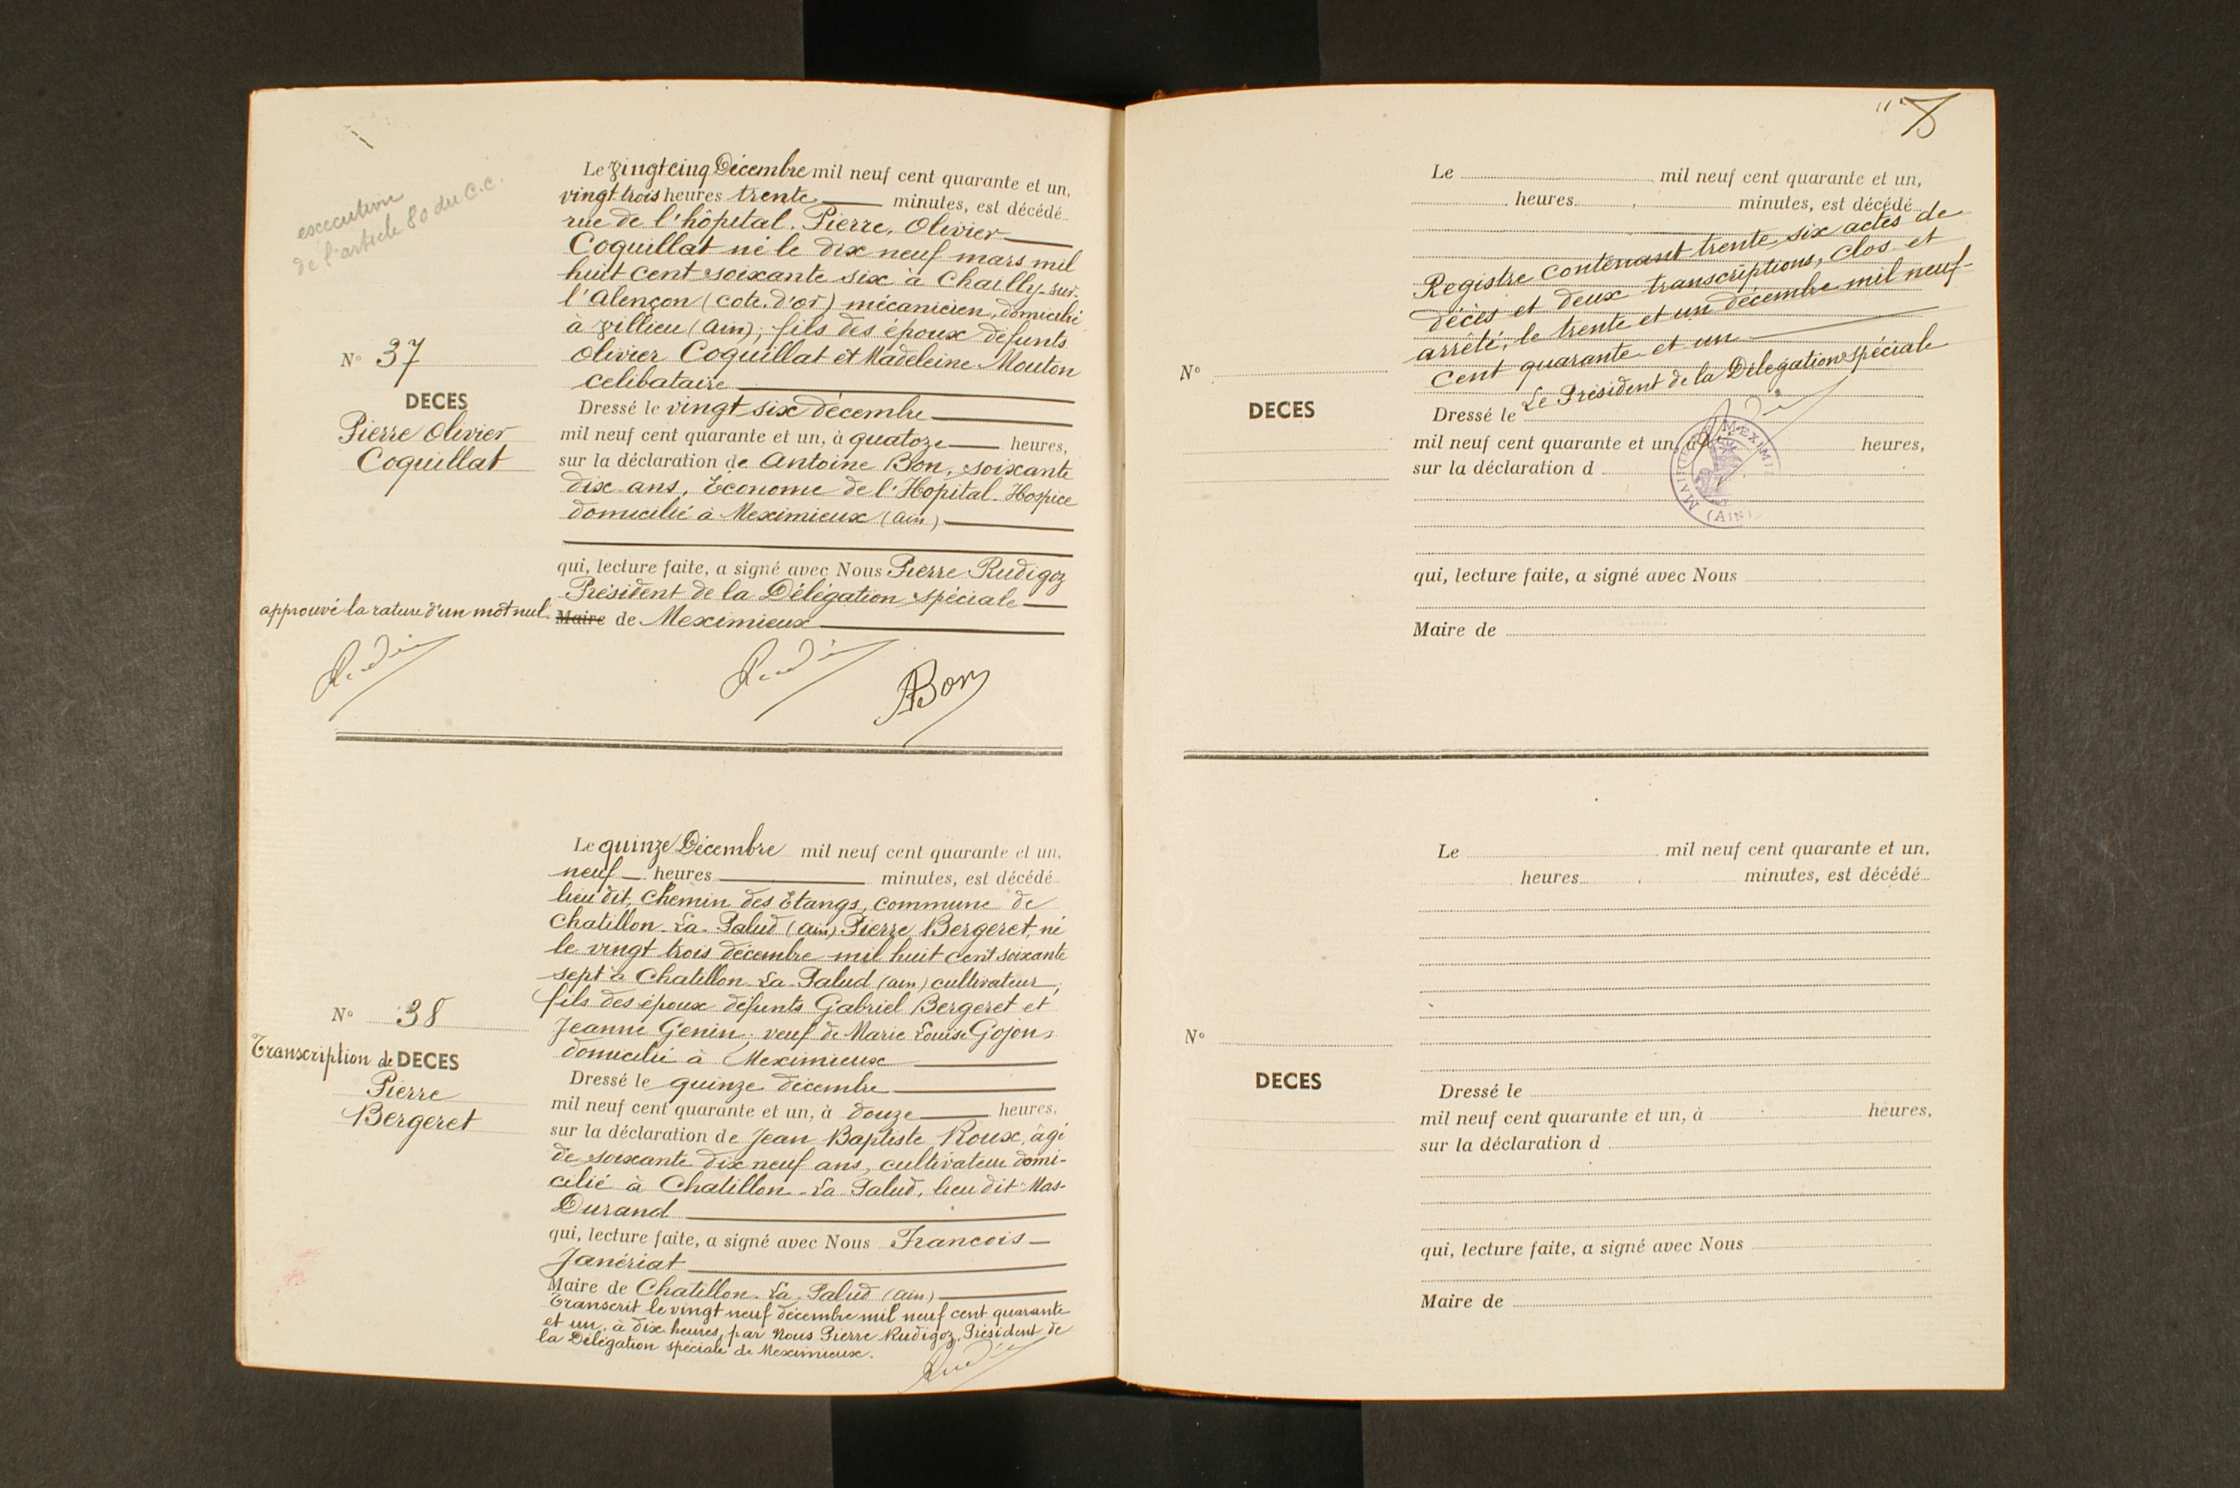 execution
de l'article 80 du C.C.
Le vingt cinq Décembre mil neuf cent quarante et un,
vingt trois heures trente minutes, est décédé
rue de l'hôpital. Pierre, Olivier
Coquillat né le dix neuf mars mil
huit cent soixante six à Chailly-sur-
l'Alençon (cote d'or) mécanicien, domicilié
à Villieu (Ain), fils des époux défunts
Olivier Coquillat et Madeleine Mouton
celibataire
N° 37
DECES
Pierre Olivier
Coquillat
Dressé le vingt six décembre
mil neuf cent quarante et un, à quatoze heures,
sur la déclaration de Antoine Bon, soixante
dix ans, Econome de l'Hopital-Hospice
domicilié à Meximieux (Ain)
qui, lecture faite, a signé avec Nous Pierre Rudigoz
Président de la Délégation spéciale
Maire de Meximieux
approuvé la rature d'un mot nul.
ABon
Le quinze Décembre mil neuf cent quarante et un,
neuf heures minutes, est décédé
lieu dit, Chemin des Etangs, commune de
Chatillon-La-Palud (Ain) Pierre Bergeret, né
le vingt trois décembre mil huit cent soixante
sept à Chatillon-La-Palud (Ain) cultivateur,
fils des époux défunts Gabriel Bergeret et
Jeanne Genin, veuf de Marie Louise Gojon
domicilié à Meximieux
N° 38
Transcription de DECES
Pierre
Bergeret
Dressé le quinze décembre
mil neuf cent quarante et un, à douze heures,
sur la déclaration de Jean Baptiste Roux, âgé
de soixante dix neuf ans, cultivateur domi-
cilié à Chatillon-La-Palud, lieu dit Mas-
Durand
qui, lecture faite, a signé avec Nous Francois
Janériat
Maire de Chatillon-La-Palud (Ain)
Transcrit le vingt neuf décembre mil neuf cent quarante
et un, à dix heures, par Nous Pierre Rudigoz, Président de
la Délégation spéciale de Meximieux.
Le mil neuf cent quarante et un,
heures minutes, est décédé
Registre contenant trente six actes de
décès et deux transcriptions, clos et
arrêté, le trente et un décembre mil neuf-
cent quarante et un
Le Président de la Délégation spéciale
N°
DECES
Dressé le
mil neuf cent quarante et un, à heures,
sur la déclaration d
MAIRIE DE MEXIMIEUX
(AIN)
qui, lecture faite, a signé avec Nous
Maire de
Le mil neuf cent quarante et un,
heures minutes, est décédé
N°
DECES
Dressé le
mil neuf cent quarante et un, à heures,
sur la déclaration d
qui, lecture faite, a signé avec Nous
Maire de